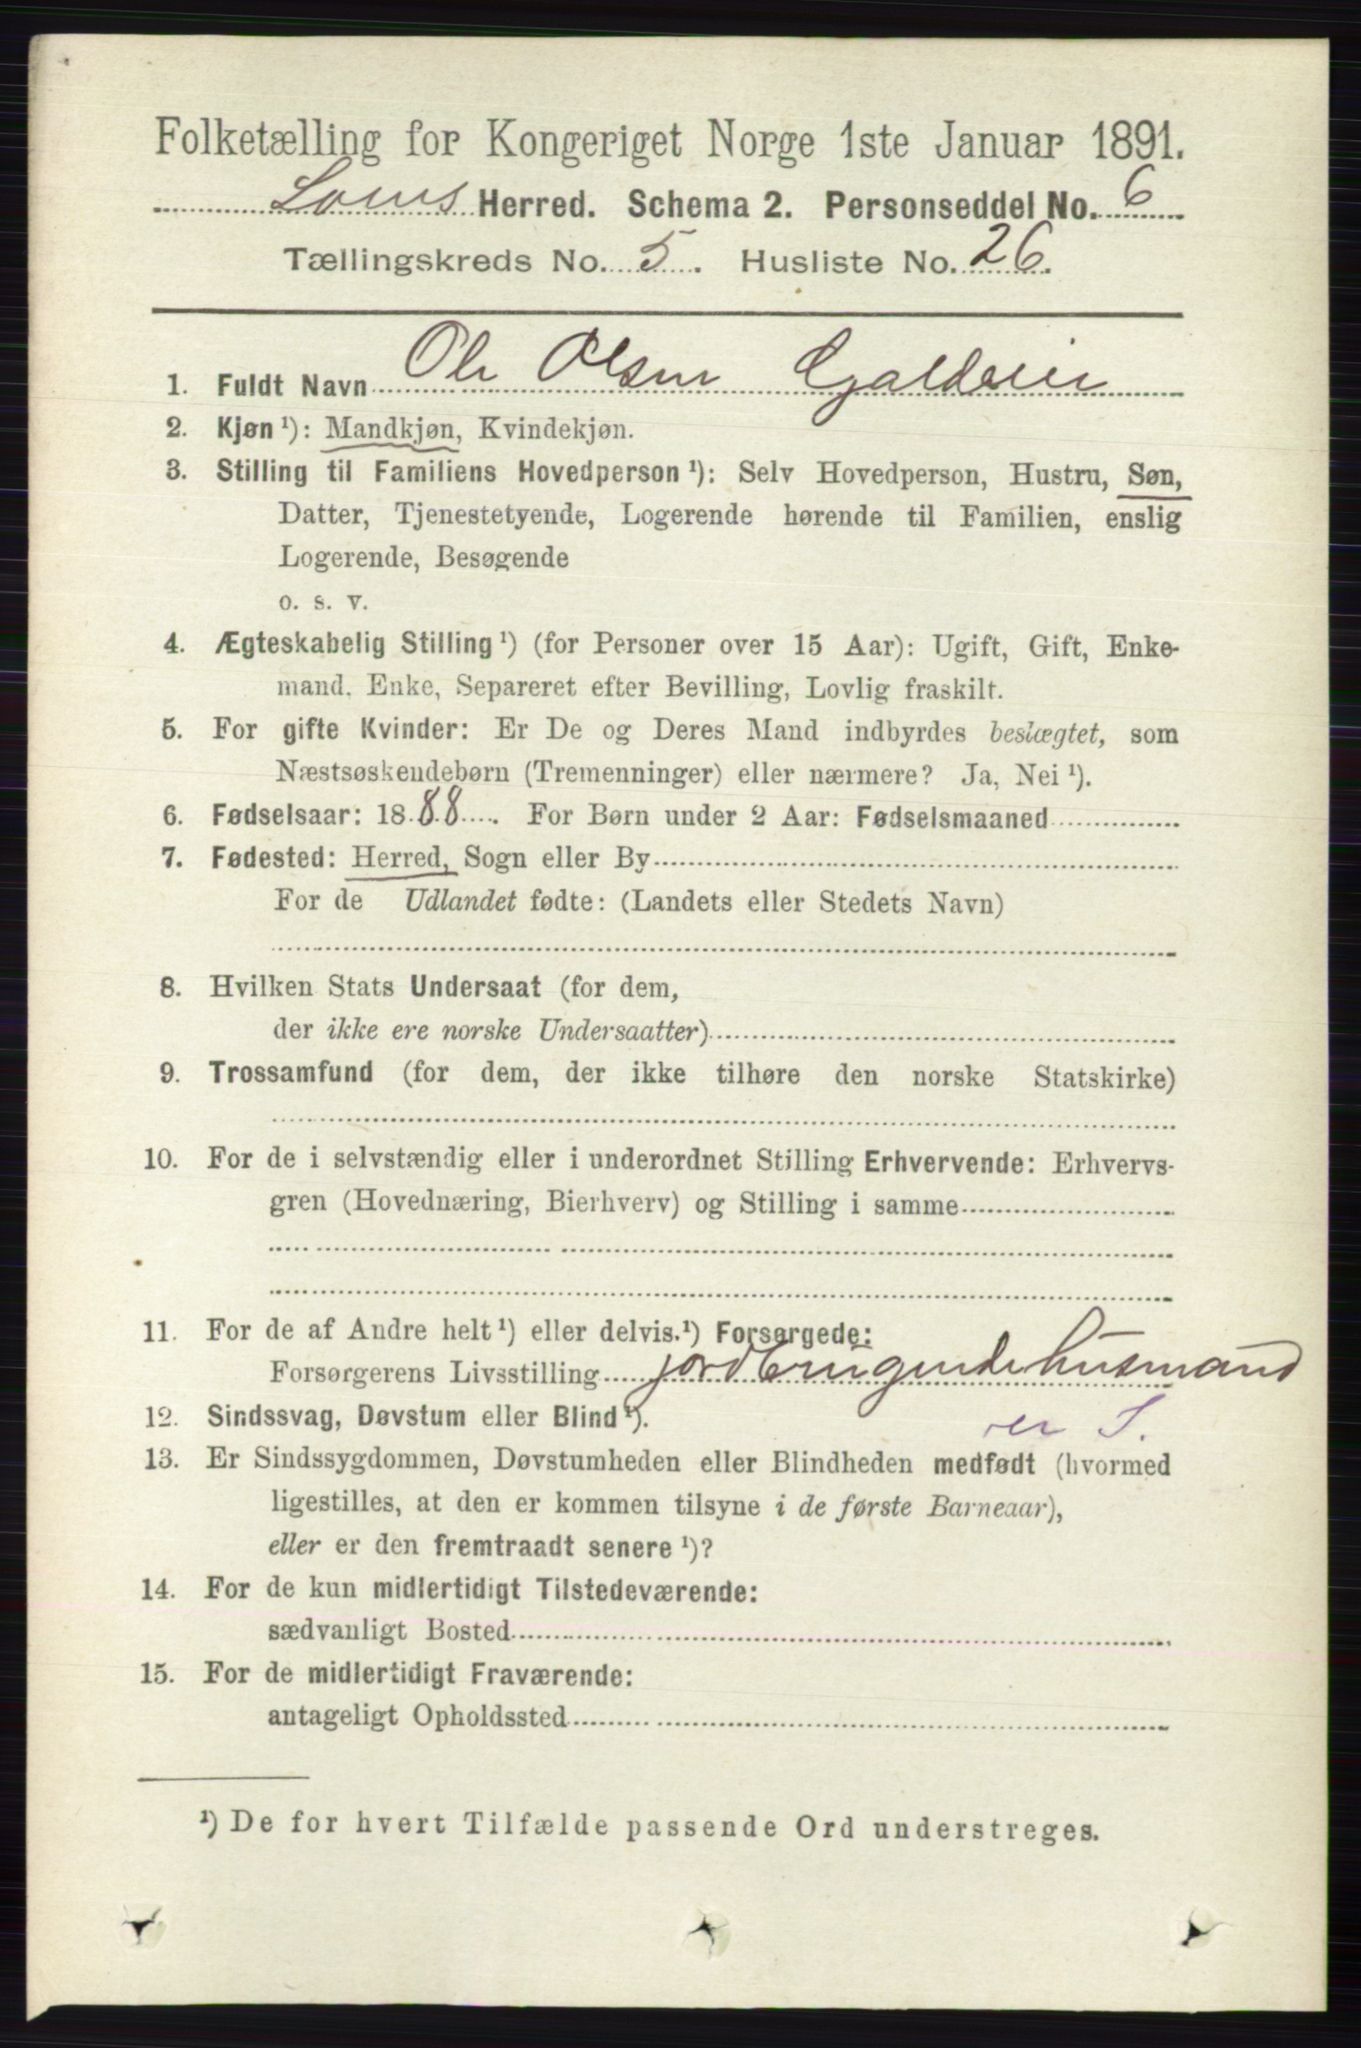 Folketælling for Kongeriget Norge 1ste Januar 1891.
Loms Herred. Schema 2. Personseddel No. 6
Tællingskreds No. 5. Husliste No. 26.
1. Fuldt Navn Ole Olsen
2. Kjøn ¹): Mandkjøn, Kvindekjøn.
3. Stilling til Familiens Hovedperson ¹): Selv Hovedperson, Hustru, Søn,
Datter, Tjenestetyende, Logerende hørende til Familien, enslig
Logerende, Besøgende
o. s. v.
4. Ægteskabelig Stilling ¹) (for Personer over 15 Aar): Ugift, Gift, Enke-
mand, Enke, Separeret efter Bevilling, Lovlig fraskilt.
5. For gifte Kvinder: Er De og Deres Mand indbyrdes beslægtet, som
Næstsøskendebørn (Tremenninger) eller nærmere? Ja, Nei ¹).
6. Fødselsaar: 1888. For Børn under 2 Aar: Fødselsmaaned
7. Fødested: Herred, Sogn eller By
For de Udlandet fødte: (Landets eller Stedets Navn)
8. Hvilken Stats Undersaat (for dem,
der ikke ere norske Undersaatter)
9. Trossamfund (for dem, der ikke tilhøre den norske Statskirke)
10. For de i selvstændig eller i underordnet Stilling Erhvervende: Erhvervs-
gren (Hovednæring, Bierhverv) og Stilling i samme
11. For de af Andre helt ¹) eller delvis. ¹) Forsørgede:
Forsørgerens Livsstilling jordbrugende husmand
12. Sindssvag, Døvstum eller Blind ¹). er S.
13. Er Sindssygdommen, Døvstumheden eller Blindheden medfødt (hvormed
ligestilles, at den er kommen tilsyne i de første Barneaar),
eller er den fremtraadt senere ¹)?
14. For de kun midlertidigt Tilstedeværende:
sædvanligt Bosted
15. For de midlertidigt Fraværende:
antageligt Opholdssted
¹) De for hvert Tilfælde passende Ord understreges.